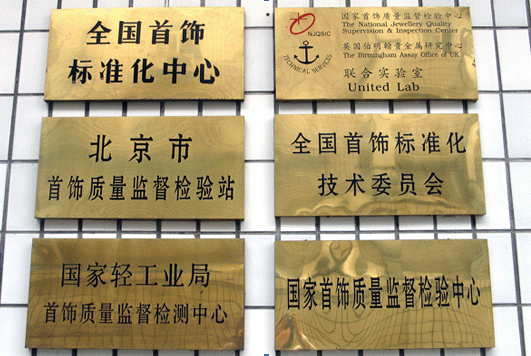 全国首饰
标准化中心
NJQSIC
TECHNICAL SERVICES
国家首饰质量监督检验中心
The National Jewellery Quality
Supervision & Inspection Center
英国伯明翰贵金属研究中心
The Birmingham Assay Office of UK
联合实验室
United Lab
北京市
首饰质量监督检验站
全国首饰标准化
技术委员会
国家轻工业局
首饰质量监督检测中心
国家首饰质量监督检验中心